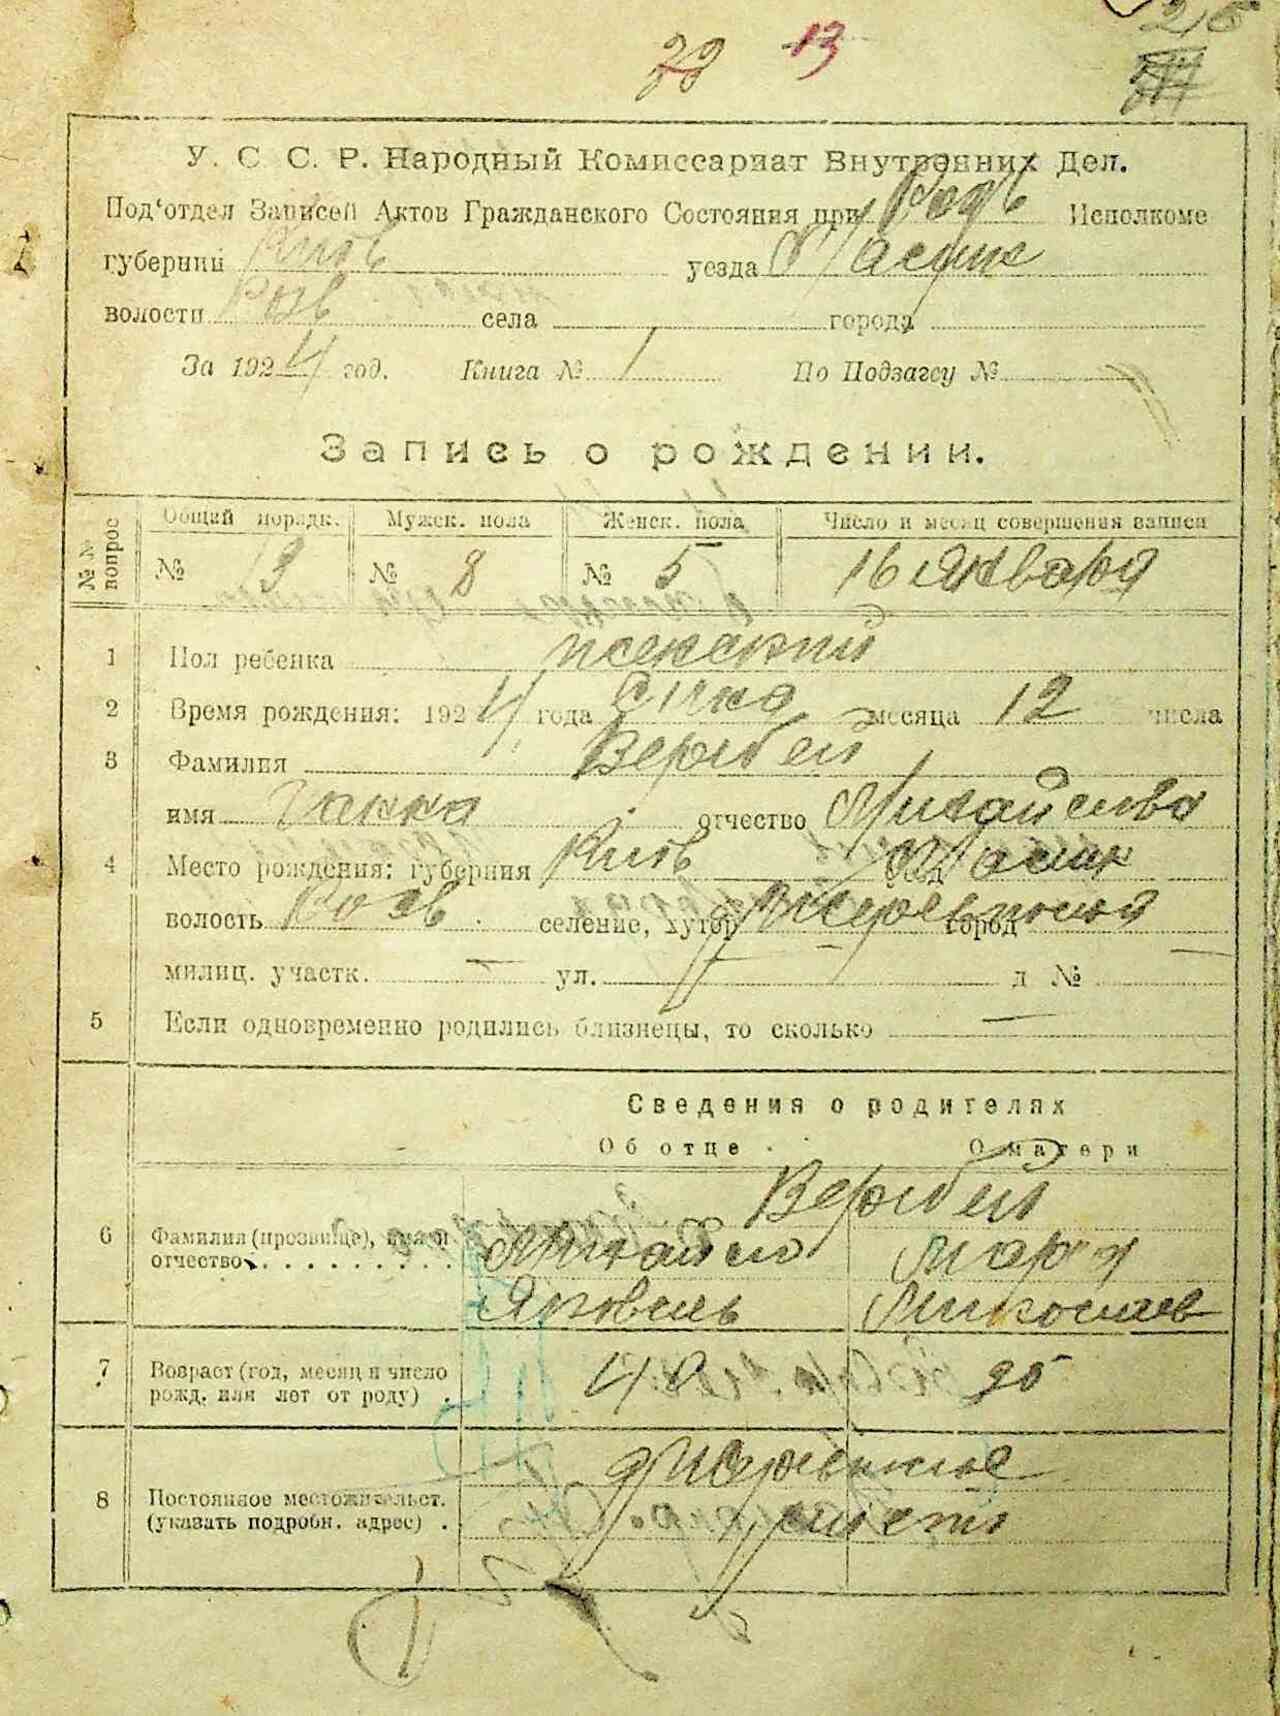 29 13 26
У. С. С. Р. Народный Комиссариат Внутренних Дел.
Под'отдел Записей Актов Гражданского Состояния при Исполкоме
губернии Київ уезда
волости Розв села города
За 1924 год. Книга № 1 По Подзагсу №
Запись о рождении.
№№ вопрос Общий порядк. Мужск. пола Женск. пола Число и месяц совершения записи
№ 13 № 8 № 5 16 Января
1 Пол ребенка женский
2 Время рождения: 1924 года Січня месяца 12 числа
3 Фамилия Вербей
имя Ганна отчество Михайлова
4 Место рождения: губерния Київ уезд
волость Розв селение, хутор город
милиц. участк. — ул. — д № —
5 Если одновременно родились близнецы, то сколько —
Сведения о родителях
Об отце О матери
Вербей
6 Фамилия (прозвище), имя и Михайло Мария
отчество Яковль Миколаев
7 Возраст (год, месяц и число
рожд. или лет от роду) 40 35
8 Постоянное местожительст.
(указать подробн. адрес)